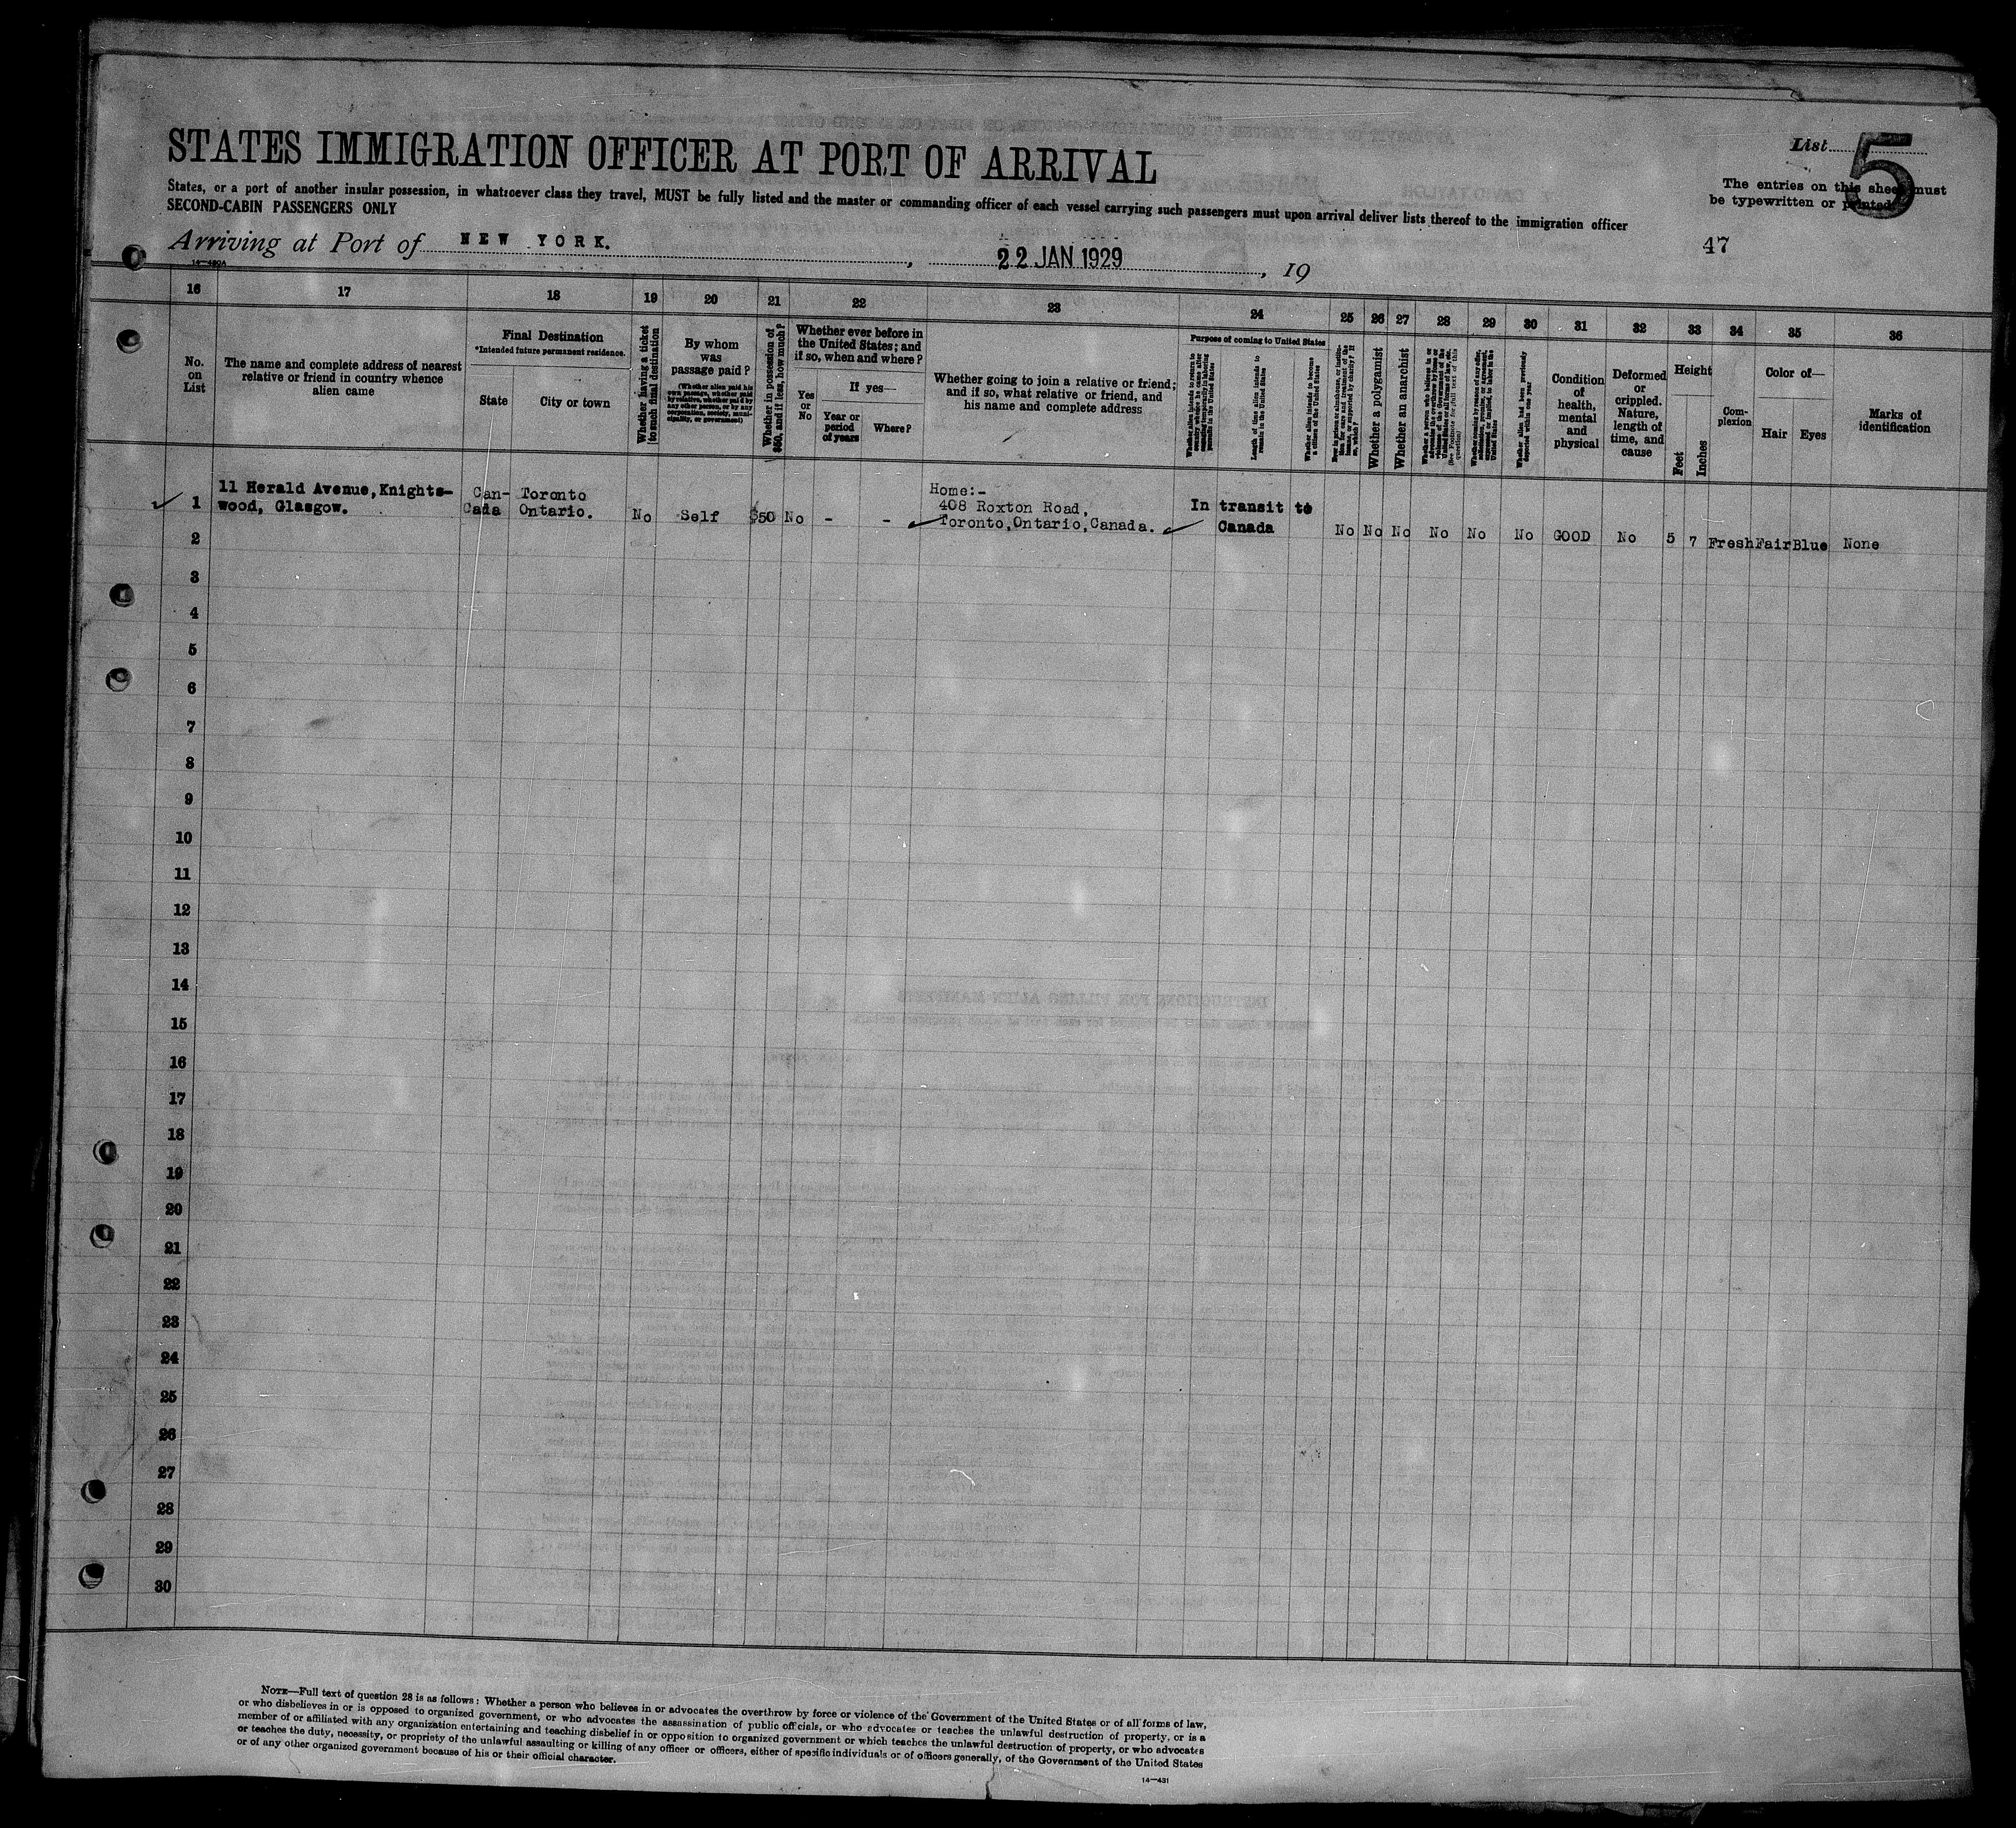 STATES IMMIGRATION OFFICER AT PORT OF ARRIVAL
List 5
States, or a port of another insular possession, in whatsoever class they travel, MUST be fully listed and the master or commanding officer of each vessel carrying such passengers must upon arrival deliver lists thereof to the immigration officer
SECOND-CABIN PASSENGERS ONLY
The entries on this sheet must
be typewritten or printed.
Arriving at Port of NEW YORK. , 22 JAN 1929 , 19
47
16 17 18 19 20 21 22 23 24 25 26 27 28 29 30 31 32 33 34 35 36
No.
on
List
The name and complete address of nearest
relative or friend in country whence
alien came
Final Destination
*Intended future permanent residence.
State
City or town
Whether having a ticket
to such final destination
By whom
was
passage paid?
(Whether alien paid his
own passage, whether paid
by relative, whether paid by
any other person, or by any
corporation, society, muni-
cipality, or government)
Whether in possession of
$50, and if less, how much?
Whether ever before in
the United States; and
if so, when and where?
Yes
or
No
If yes—
Year or
period
of years
Where?
Whether going to join a relative or friend;
and if so, what relative or friend, and
his name and complete address
Purpose of coming to United States
Length of time alien intends to
remain in the United States
Whether alien intends to become
a citizen of the United States
Whether a polygamist
Whether an anarchist
Whether alien had been previously
deported within one year
Condition
of
health,
mental
and
physical
Deformed
or
crippled.
Nature,
length of
time, and
cause
Height
Feet
Inches
Com-
plexion
Color of—
Hair
Eyes
Marks of
identification
1
11 Herald Avenue, Knights-
wood, Glasgow.
Can-
Cada
Toronto
Ontario.
No
Self
$50
No
-
-
Home:-
408 Roxton Road,
Toronto, Ontario, Canada.
In transit to
Canada
No No No No No No GOOD No 5 7 Fresh Fair Blue None
2
3
4
5
6
7
8
9
10
11
12
13
14
15
16
17
18
19
20
21
22
23
24
25
26
27
28
29
30
NOTE—Full text of question 28 is as follows: Whether a person who believes in or advocates the overthrow by force or violence of the Government of the United States or of all forms of law,
or who disbelieves in or is opposed to organized government, or who advocates the assassination of public officials, or who advocates or teaches the unlawful destruction of property, or is a
member of or affiliated with any organization entertaining and teaching disbelief in or opposition to organized government or which teaches the unlawful destruction of property, or who advocates
or teaches the duty, necessity, or propriety of the unlawful assaulting or killing of any officer or officers, either of specific individuals or of officers generally, of the Government of the United States
or of any other organized government because of his or their official character.
14—431